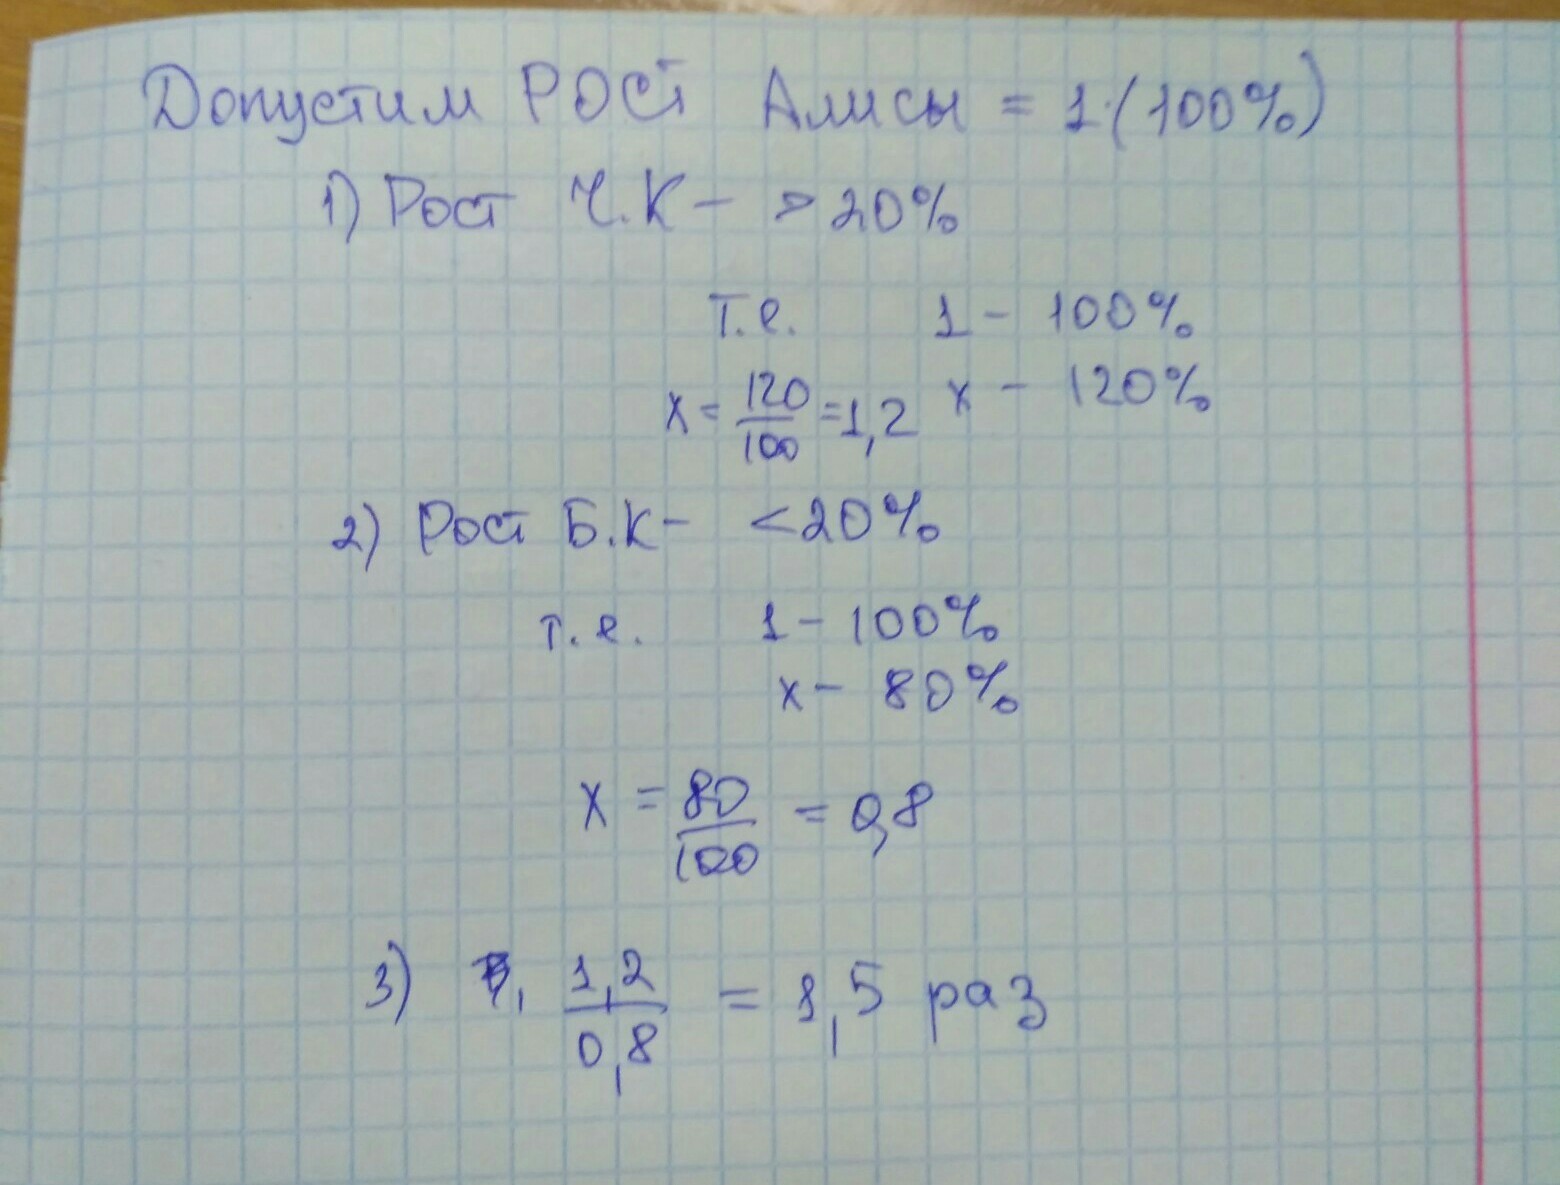 Допустим РОСТ Алисы = 1 (100%)
1) Рост Ч.К – > 20%
т.е. 1 – 100%
x = 120/100 = 1,2 x – 120%
2) Рост Б.К – < 20%
т.е. 1 – 100%
x – 80%
x = 80/100 = 0,8
3) 1,2/0,8 = 1,5 раз